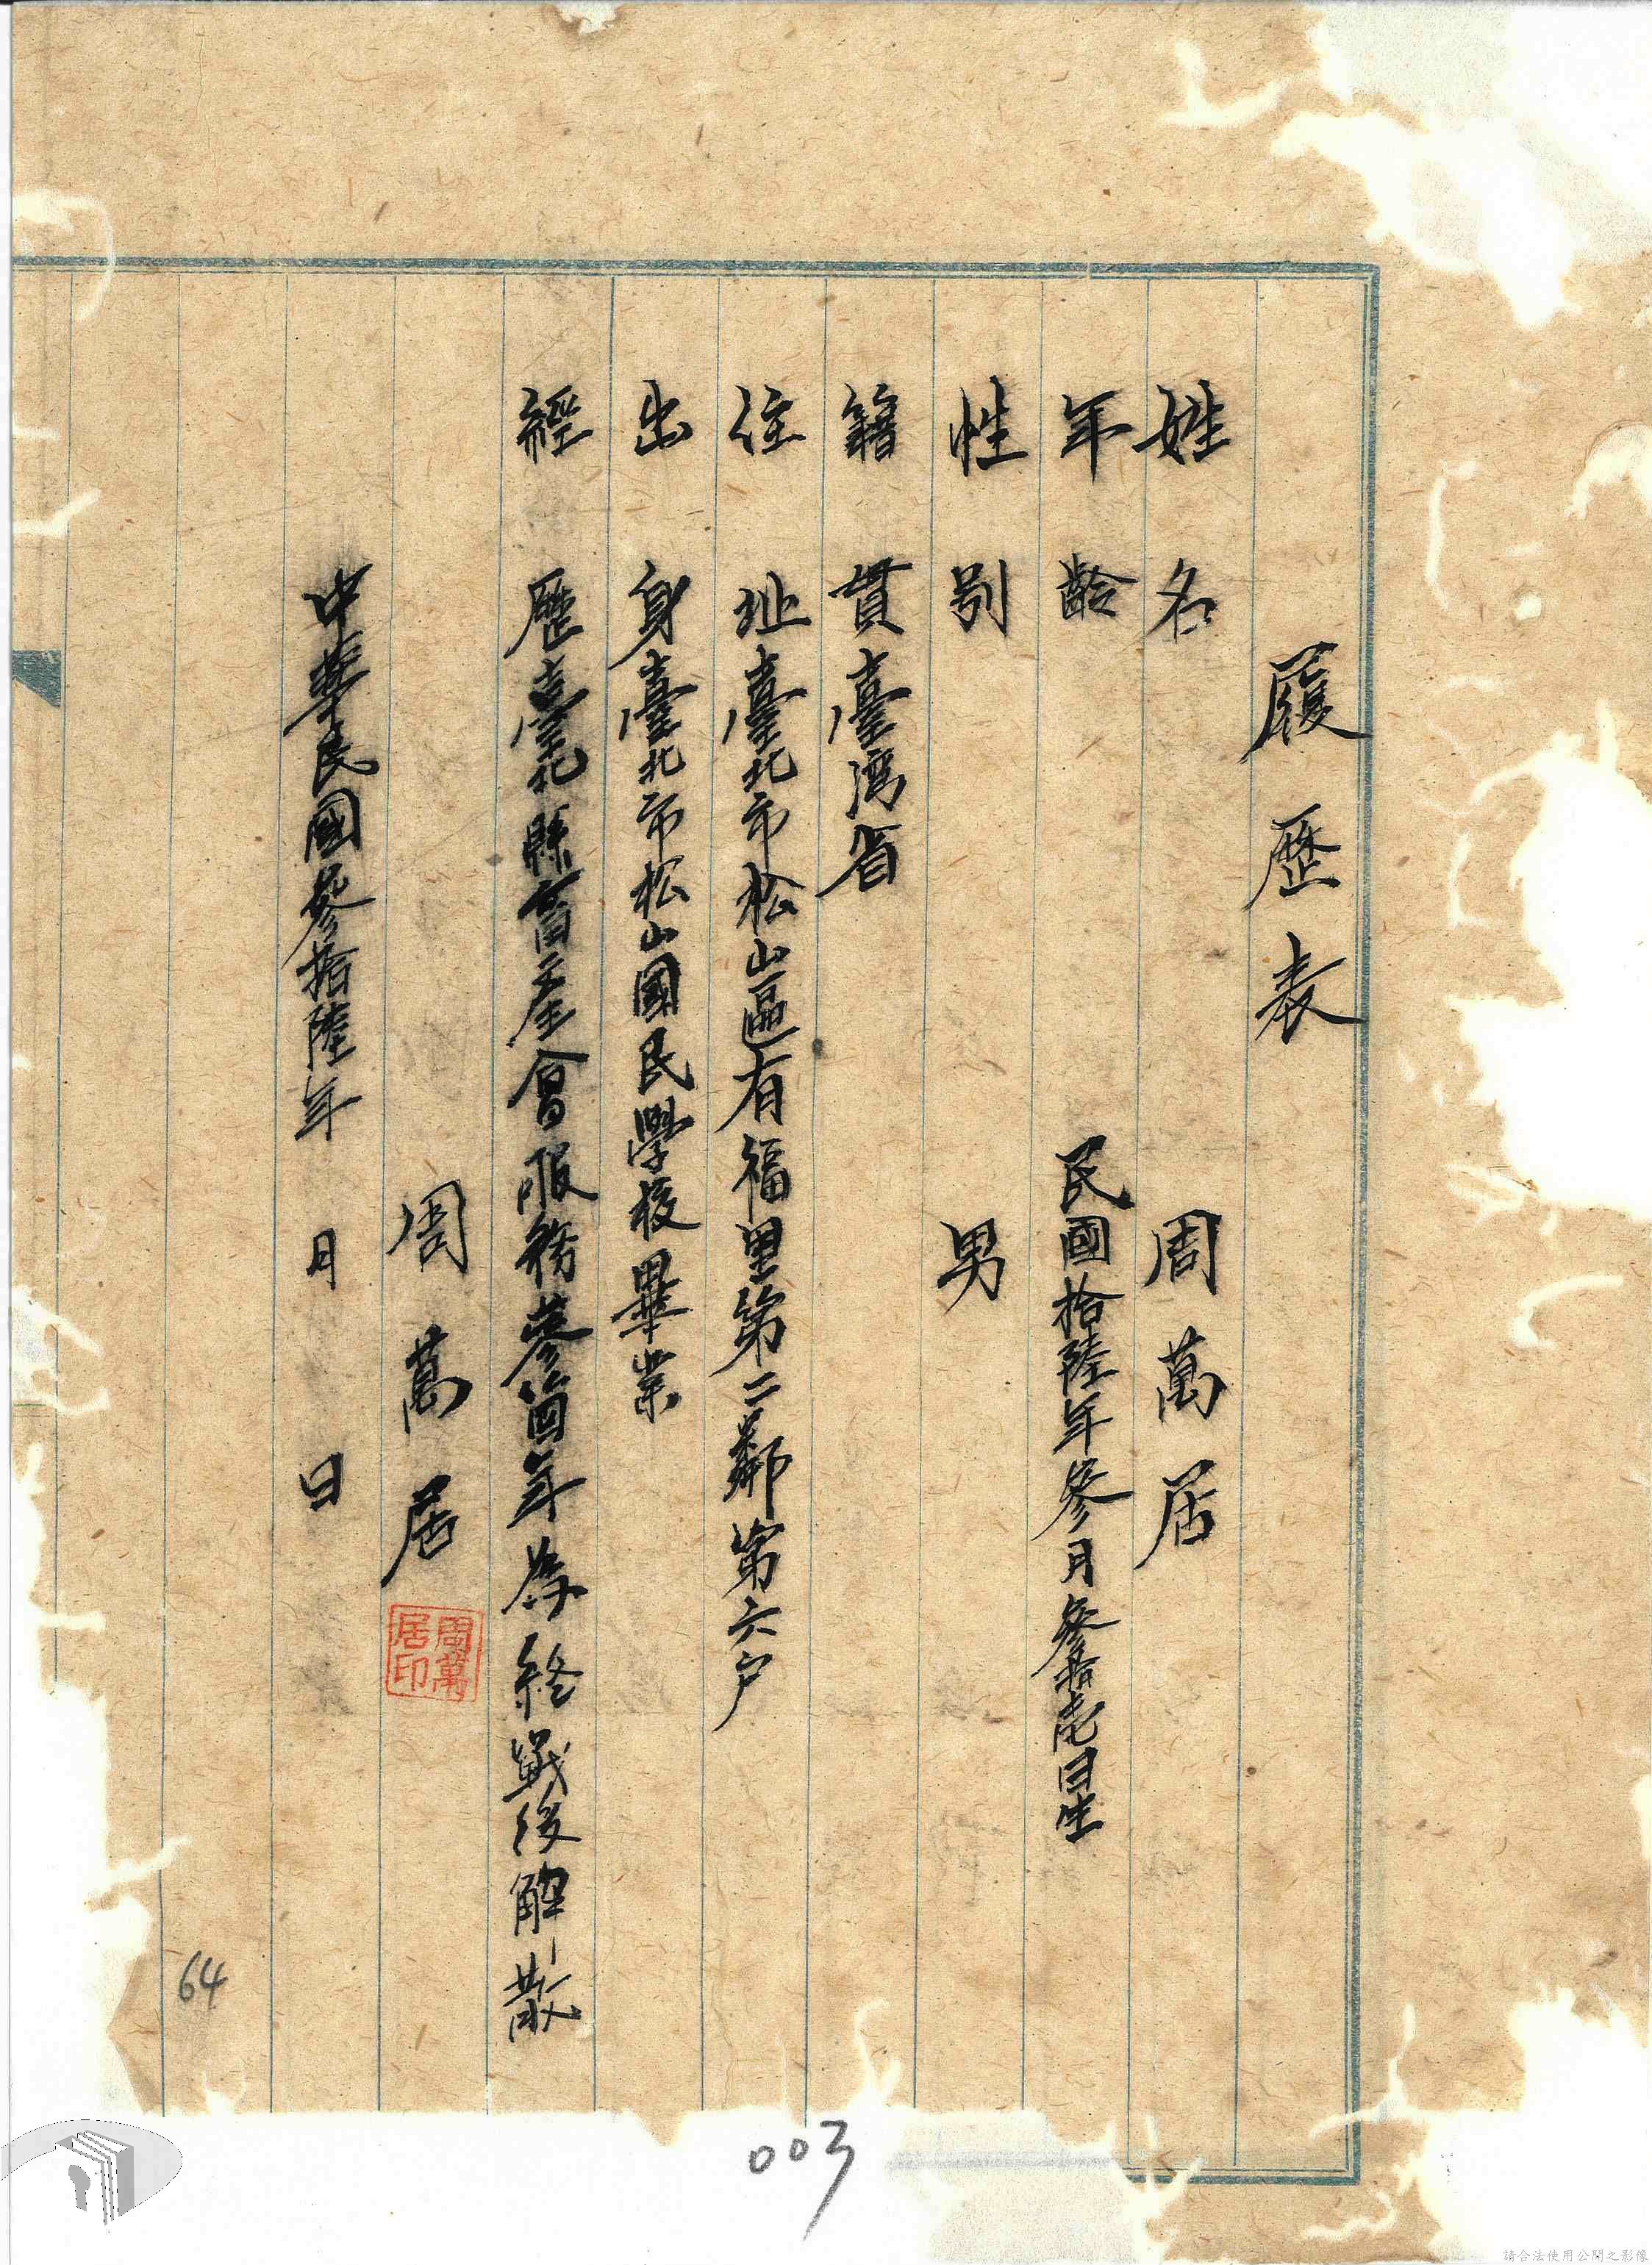 履歷表
姓名 周萬居
年齡 民國拾陸年參月參拾壱日生
性別 男
籍貫 臺灣省
住址 臺北市松山區有福里第二鄰第六户
出身 臺北市松山國民學校畢業
經歷 臺北縣畜產會服務參箇年為終戰後解散
周萬居
周萬居印
中華民國參拾陸年 月 日
64
003
請合法使用公開之影像